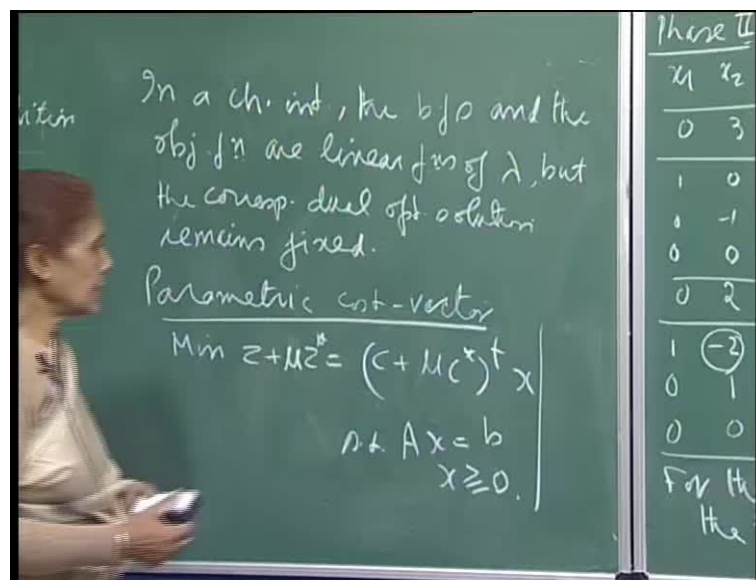 In a ch. int, the bfs and the
obj. fn are linear fns of λ, but
the corresp. dual opt. solution
remains fixed.
Parametric cost-vector
Min z+μz* = (c+μc*)ᵗ x
s.t. Ax = b
x ≥ 0.
Phase II
x1 x2
0 3
1 0
0 -1
0 0
0 2
1 -2
0 1
0 0
For the
the